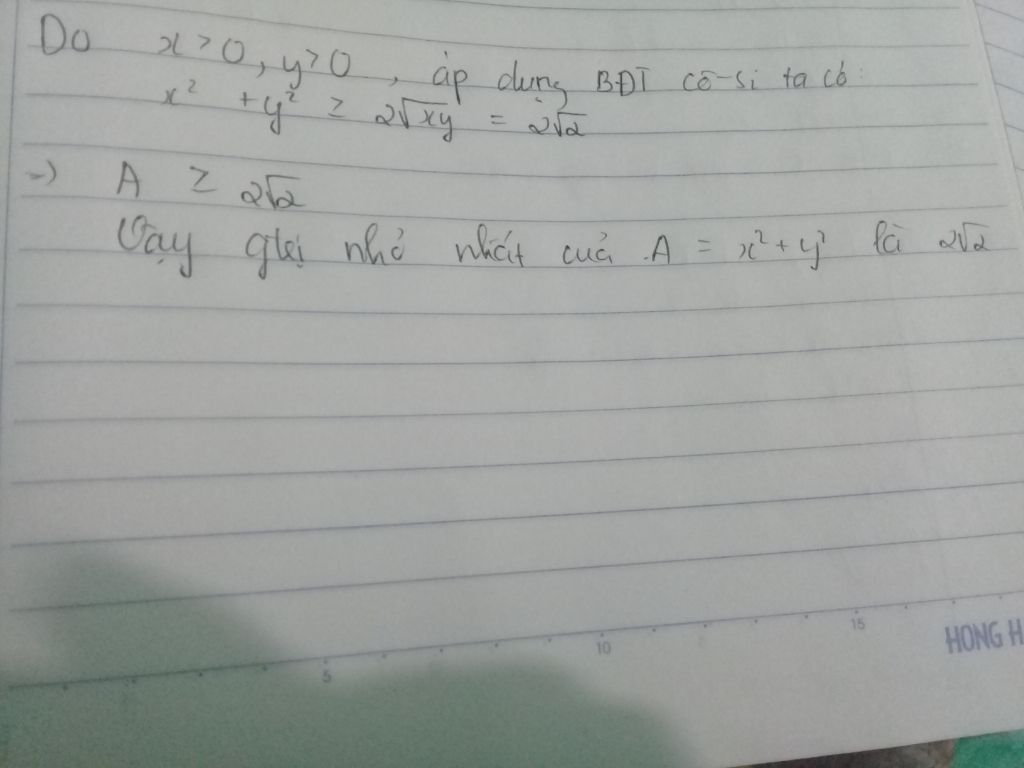 Do x > 0, y > 0, áp dụng BĐT cô-si ta có:
x² + y² ≥ 2√xy = 2√2
=) A ≥ 2√2
Vậy gtrị nhỏ nhất của A = x² + y² là 2√2
5 10 15
HONG H